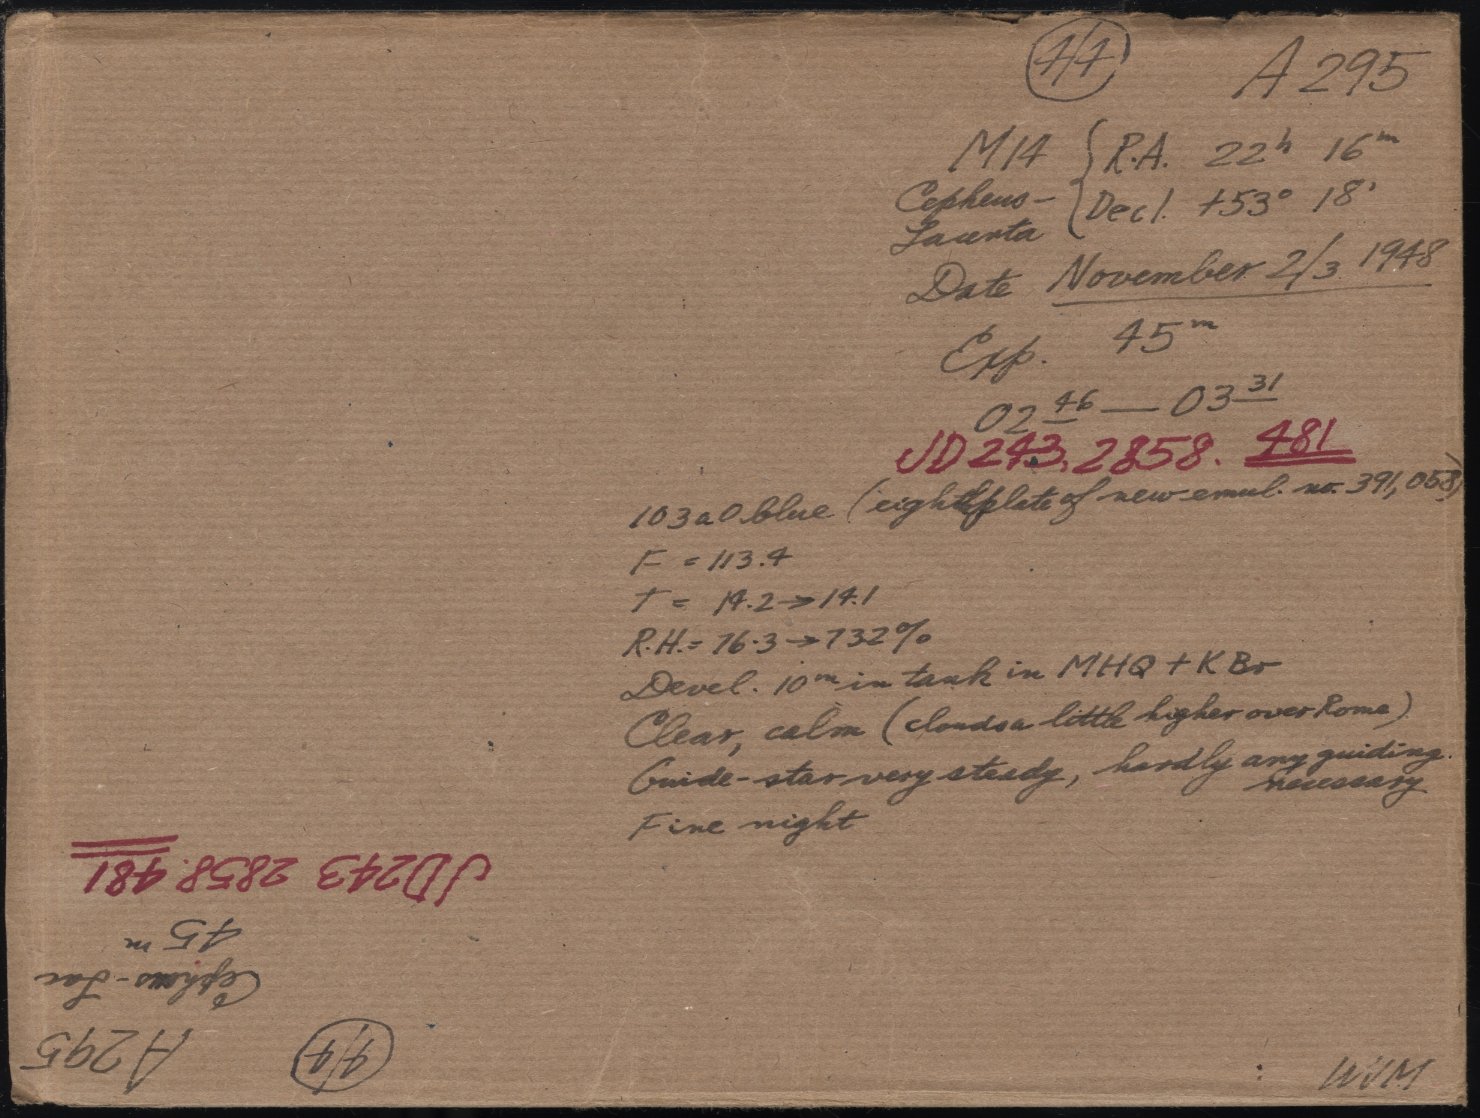 44 A 295
M14 { R.A. 22h 16m
Cepheus- { Decl. +53° 18'
Lacerta
Date November 2/3 1948
Exp. 45m
02 46 — 03 31
JD 243.2858. 481
103aO blue (eighth plate of new emul. no. 391,058)
F = 113.4
T = 14.2 → 14.1
R.H. = 76.3 → 73.2%
Devel. 10m in tank in MHQ + KBr
Clear, calm (clouds a little higher over Rome)
Guide-star very steady, hardly any guiding
necessary
Fine night
WJM
A295 44
Cepheus-Lac
45 m
JD243 2858.481